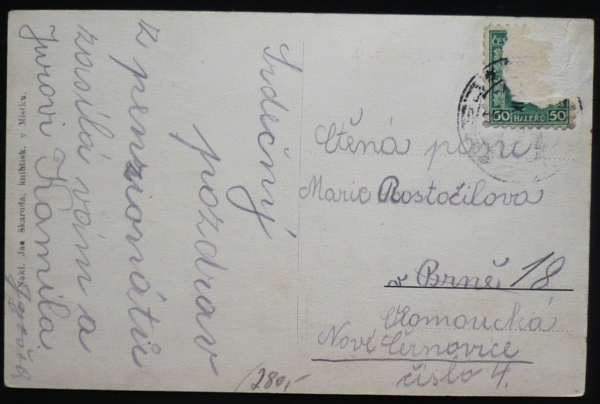 Srdečný
pozdrav
z penzionátu
zasílá vám a
Jurovi Kamila.
Nakl. Jan Škaruda, knihtisk. v Místku.
50 HALÉŘŮ 50
Ctěná paní
Marie Rostočilova
v Brně 18
Olomoucká
Nové Černovice
číslo 4.
280,-